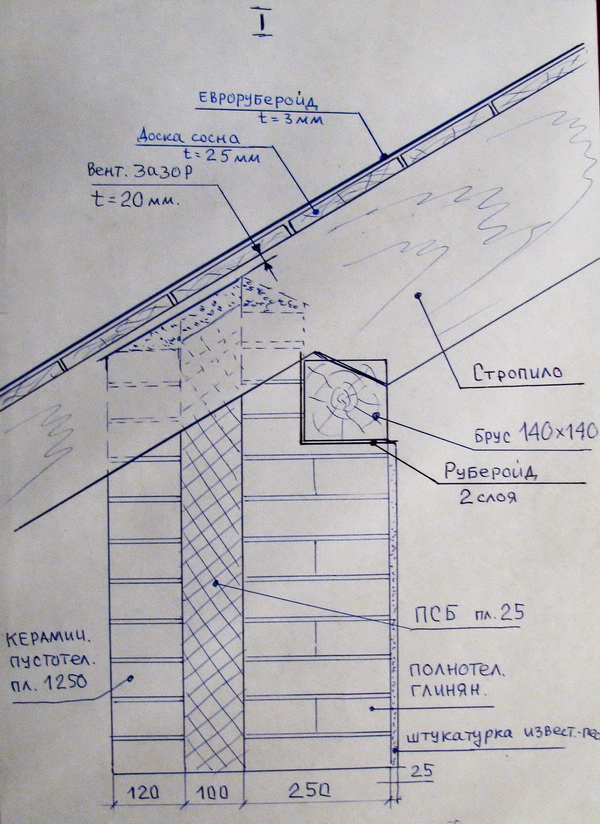 I
ЕВРОРУБЕРОЙД
t=3мм
Доска сосна
t=25мм
Вент. зазор
t=20мм.
Стропило
Брус 140×140
Рубероид
2 слоя
ПСБ пл. 25
КЕРАМИЧ.
ПУСТОТЕЛ.
пл. 1250
ПОЛНОТЕЛ.
ГЛИНЯН.
штукатурка извест.-
25
120 100 250